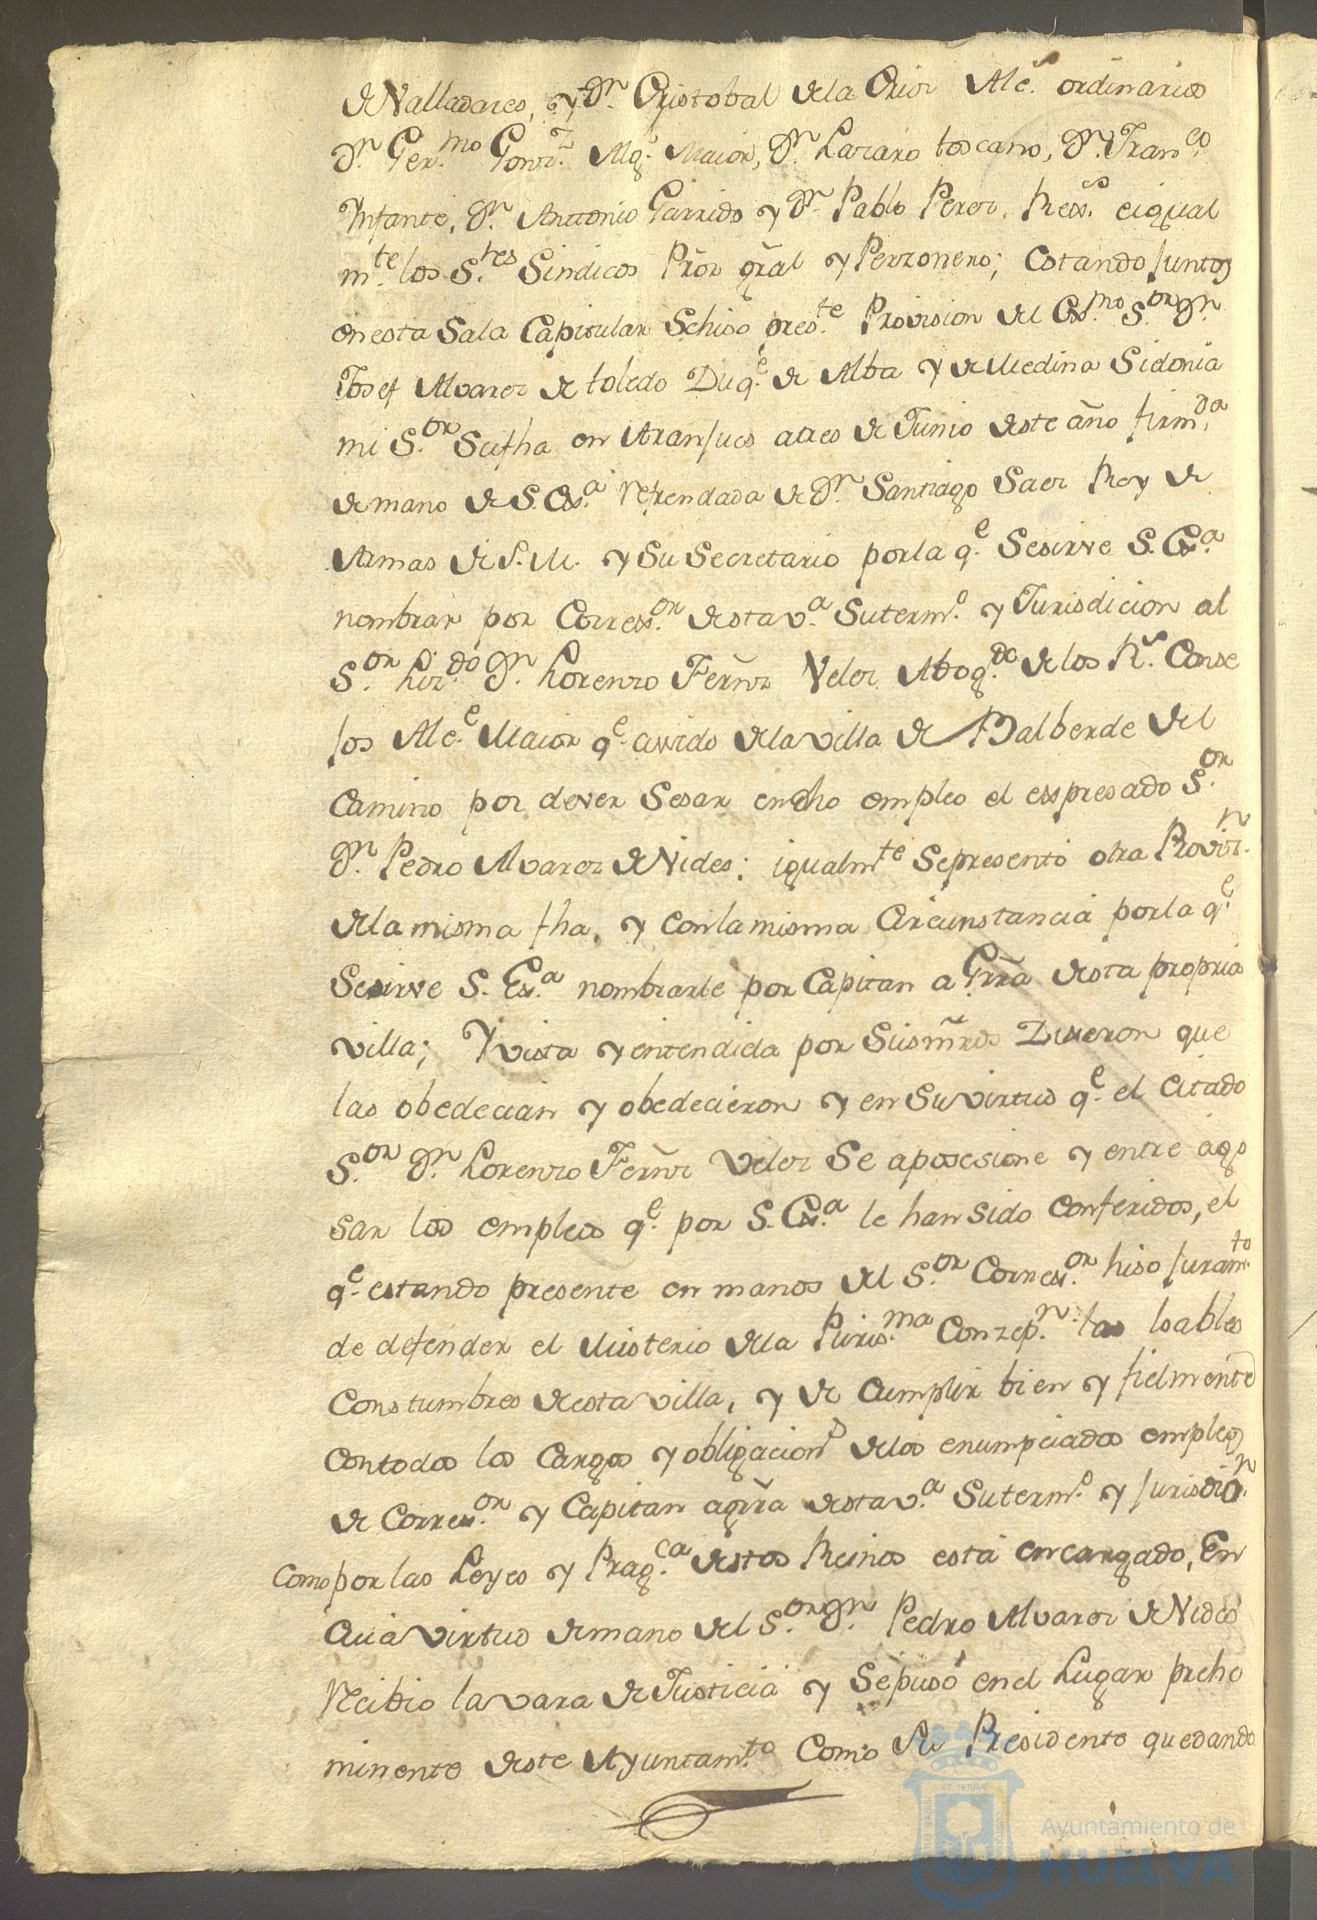 de Valladares, y Dn. Cristobal de la Orior Ales. ordinarios
Dn. Germo. Gonrz. Algl. Maior, Dn. Lazaro toscano, Dn. Franco.
Infante, Dn. Anttonio Garrido y Dn. Pablo Perez. Ress. e igual
mte. los Sres. Sindicos Pror gral y Perzonero; Estando Juntos
en esta Sala Capitular Se hiso preste. Provision del Exmo. Sor. Dn.
Josef Alvarez de toledo Duqe. de Alba y de Medina Sidonia
mi Sor. Su fha en Aranjues a tres de Junio deste año firmda.
de mano de S. Exa. refrendada de Dn. Santiago Saez Rey de
Armas de S. M. y Su Secretario por la qe. Se sirve S. Exa.
nombrar por Corresor. de esta va. Su termo. y Jurisdicion al
Sor. Lizdo. Dn. Lorenzo Fernz Velez Abogdo. de los Rs. Conse
jos Ale. Maior qe. a sido de la villa de Balberde del
Camino por dever Sesar en dho empleo el espresado Sor.
Dn. Pedro Alvarez de Nides: igualmte Se presentó otra Provin.
de la misma fha, y con la misma Circunstancia por la qe.
Se sirve S. Exa. nombrarle por Capitan a Grra desta propria
villa; Y vista y entendida por Sus mrds Dixeron que
las obedecian y obedecieron y en Su virtud qe. el Citado
Sor. Dn. Lorenzo Fernz Velez Se aposesione y entre a go
sar los empleos qe. por S. Exa. le han sido Conferidos, el
qe. estando presente en manos del Sor. Corresor. hiso Juramto.
de defender el Misterio de la Purisma. Conzepn. las loables
Constumbres de esta villa, y de Cumplir bien y fielmente
Con todos los Cargos y obligacions de los enumpciados empleos
de Corresor. y Capitan a grra desta va. Su termo. y Jurisdión.
Como por las Leyes y Pragca. destos Reinos está encargado, En
Cuia virtud de mano del Sor. Dn. Pedro Alvarez de Nides
recibio la vara de Justicia y Se pusó en el Lugar prehe
minente deste Ayuntamto. Como Su Presidente quedando
Ayuntamiento de
HUELVA